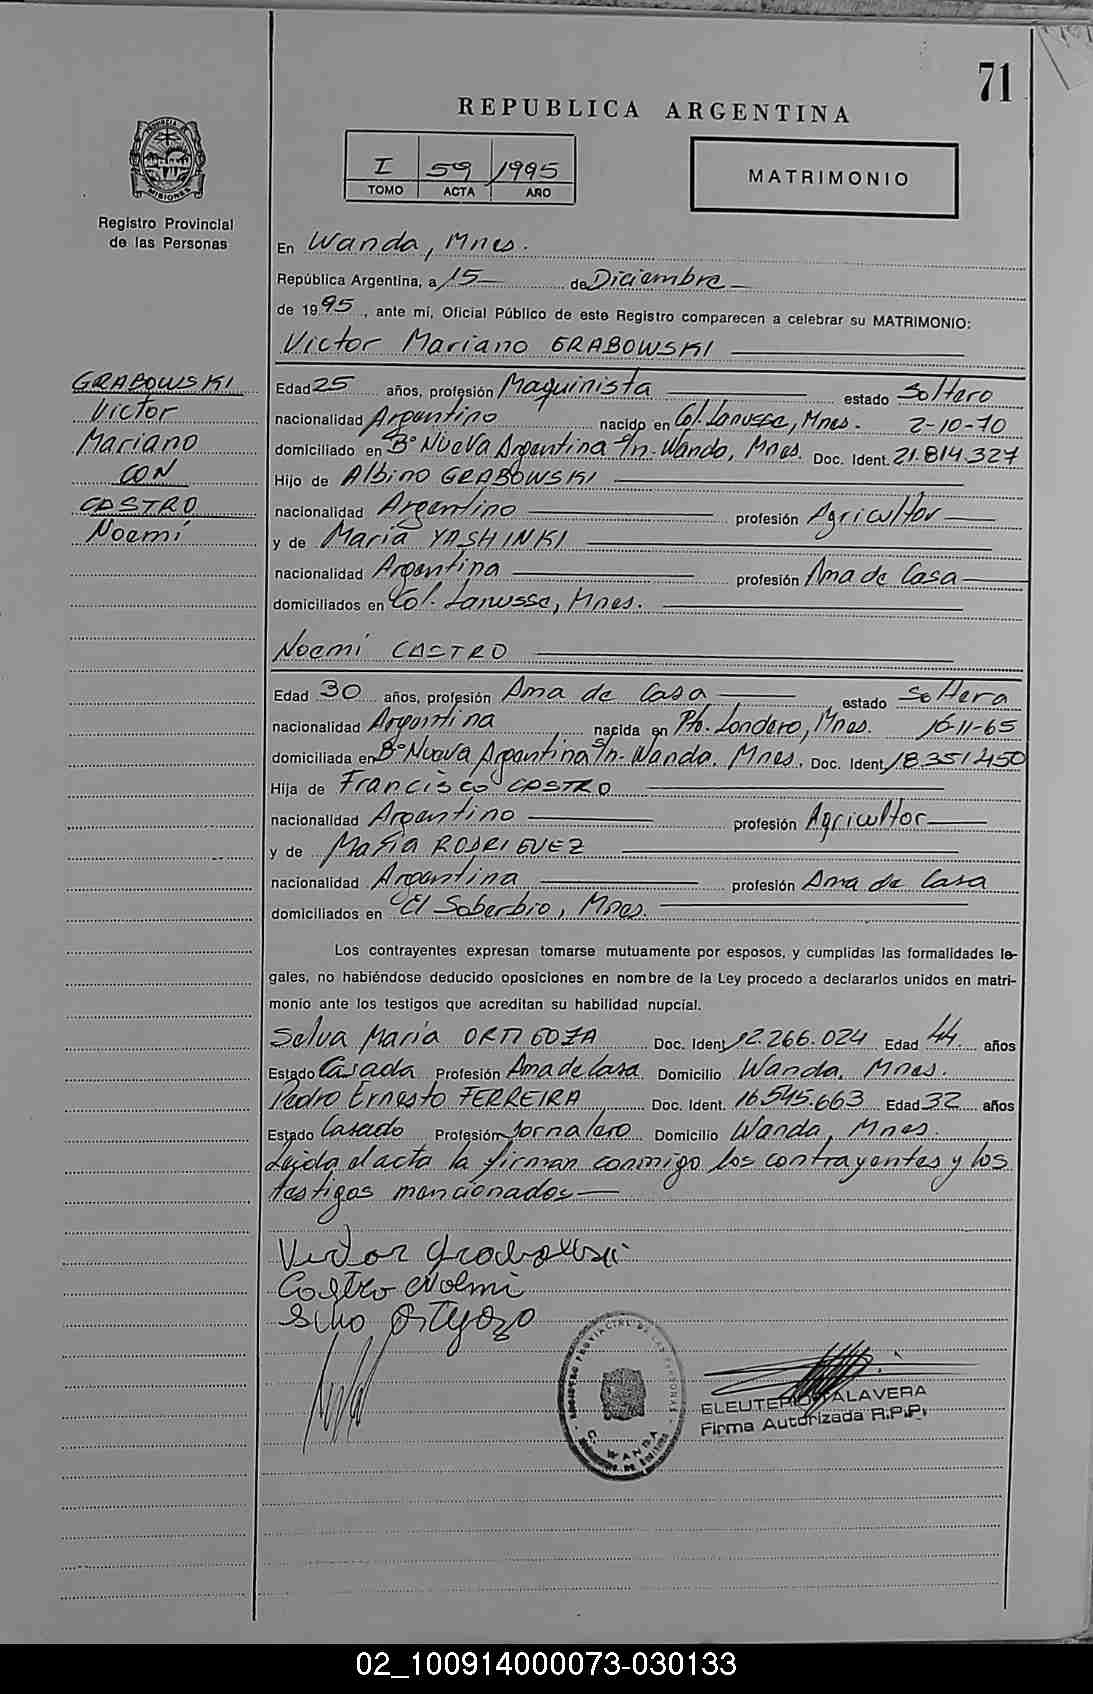 71
REPUBLICA ARGENTINA
PROVINCIA
MISIONES
Registro Provincial
de las Personas
I 59 1995
TOMO ACTA AÑO
MATRIMONIO
En Wanda, Mnes.
República Argentina, a 15 de Diciembre
de 1995, ante mí, Oficial Público de este Registro comparecen a celebrar su MATRIMONIO:
Victor Mariano GRABOWSKI
GRABOWSKI
Victor
Mariano
CON
CASTRO
Noemí
Edad 25 años, profesión Maquinista estado Soltero
nacionalidad Argentino nacido en Col. Lanusse, Mnes. 2-10-70
domiciliado en B° Nueva Argentina s/n-Wanda, Mnes. Doc. Ident. 21.814.327
Hijo de Albino GRABOWSKI
nacionalidad Argentino profesión Agricultor
y de María YASHINKI
nacionalidad Argentina profesión Ama de Casa
domiciliados en Col. Lanusse, Mnes.
Noemí CASTRO
Edad 30 años, profesión Ama de Casa estado Soltera
nacionalidad Argentina nacida en Pto. Londero, Mnes. 16-11-65
domiciliada en B° Nueva Argentina s/n-Wanda, Mnes. Doc. Ident. 18.351.450
Hija de Francisco CASTRO
nacionalidad Argentino profesión Agricultor
y de María RODRIGUEZ
nacionalidad Argentina profesión Ama de Casa
domiciliados en El Soberbio, Mnes.
Los contrayentes expresan tomarse mutuamente por esposos, y cumplidas las formalidades le-
gales, no habiéndose deducido oposiciones en nombre de la Ley procedo a declararlos unidos en matri-
monio ante los testigos que acreditan su habilidad nupcial.
Selva María ORTIGOZA Doc. Ident. 12.266.024 Edad 44 años
Estado Casada Profesión Ama de Casa Domicilio Wanda, Mnes.
Pedro Ernesto FERREIRA Doc. Ident. 16.545.663 Edad 32 años
Estado Casado Profesión Jornalero Domicilio Wanda, Mnes.
Leida el acta la firman conmigo los contrayentes y los
testigos mencionados
Victor Grabowski
Castro Noemi
ELEUTERIO TALAVERA
Firma Autorizada R.P.P.
REGISTRO PROVINCIAL DE LAS PERSONAS
WANDA
02_100914000073-030133